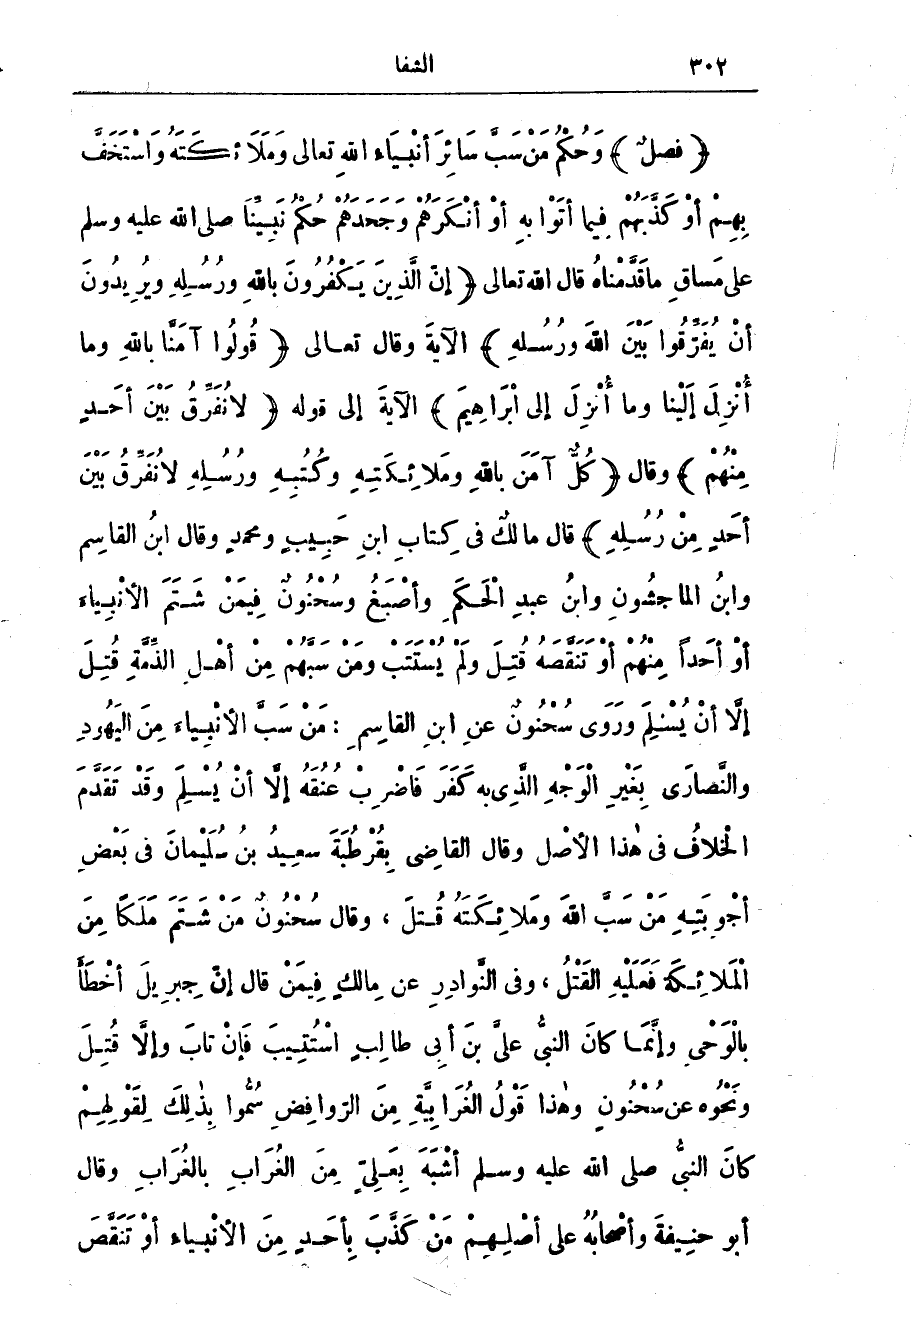 ٣٠٢ الشفا
﴿ فصلٌ ﴾ وَحُكْمُ مَنْ سَبَّ سَائِرَ أَنْبِيَاءِ اللهِ تعالى وَمَلَائِكَتَهُ وَاسْتَخَفَّ
بِهِمْ أَوْ كَذَّبَهُمْ فِيما أَتَوْا بِهِ أَوْ أَنْكَرَهُمْ وَجَحَدَهُمْ حُكْمُ نَبِيِّنَا صلى الله عليه وسلم
على مَساقِ ماقَدَّمْناهُ قال الله تعالى ﴿ إنَّ الَّذِينَ يَكْفُرُونَ باللهِ ورُسُلِهِ ويُرِيدُونَ
أنْ يُفَرِّقُوا بَيْنَ اللهِ ورُسُلِهِ ﴾ الآيةَ وقال تعالى ﴿ قُولُوا آمَنَّا باللهِ وما
أُنْزِلَ إلَيْنا وما أُنْزِلَ إلى ابْرَاهِيمَ ﴾ الآيةَ إلى قوله ﴿ لانُفَرِّقُ بَيْنَ أحَدٍ
مِنْهُمْ ﴾ وقال ﴿ كُلٌّ آمَنَ باللهِ ومَلائِكَتِهِ وكُتُبِهِ ورُسُلِهِ لانُفَرِّقُ بَيْنَ
أحَدٍ مِنْ رُسُلِهِ ﴾ قال مالكٌ فى كِتابِ ابنِ حَبِيبٍ ومحمدٍ وقال ابنُ القاسم
وابنُ الماجشُونِ وابنُ عبدِ الْحَكَمِ وأصْبَغُ وسُحْنُونٌ فِيمَنْ شَتَمَ الأنْبِياءَ
أوْ أحَداً مِنْهُمْ أوْ تَنَقَّصَهُ قُتِلَ ولَمْ يُسْتَتَبْ ومَنْ سَبَّهُمْ مِنْ أهْلِ الذِّمَّةِ قُتِلَ
إلَّا أنْ يُسْلِمَ ورَوَى سُحْنُونٌ عنِ ابنِ القاسِمِ : مَنْ سَبَّ الأنْبِياءَ مِنَ اليَهُودِ
والنَّصارَى بِغَيْرِ الْوَجْهِ الَّذِى به كَفَرَ فَاضْرِبْ عُنُقَهُ إلَّا أنْ يُسْلِمَ وقَدْ تَقَدَّمَ
الْخلافُ فى هٰذا الأصْلِ وقال القاضِى بِقُرْطُبَةَ سعِيدُ بنُ سُلَيْمانَ فى بَعْضِ
أجْوِبَتِهِ مَنْ سَبَّ اللهَ ومَلائِكَتَهُ قُتلَ ، وقال سُحْنُونٌ مَنْ شَتَمَ مَلَكًا مِنَ
الْمَلائِكَةِ فَعَلَيْهِ القَتْلُ ، وفى النَّوادِرِ عن مالكٍ فِيمَنْ قال إنَّ جِبرِيلَ أخْطَأَ
بالْوَحْىِ وإنَّمَا كانَ النبيُّ عَلىَّ بنَ أبى طالِبٍ اسْتُتِيبَ فَإنْ تابَ وإلَّا قُتِلَ
ونَحْوُه عن سُحْنُونٍ وهٰذا قَوْلُ الغُرَابِيَّةِ مِنَ الرَّوافِضِ سُمُّوا بِذٰلِكَ لِقَوْلِهِمْ
كانَ النبيُّ صلى الله عليه وسلم أشْبَهَ بِعَلِىٍّ مِنَ الغُرَابِ بالغُرَابِ وقال
أبو حنِيفةَ وأصْحابُهُ على أصْلِهِمْ مَنْ كَذَّبَ بِأحَدٍ مِنَ الأنْبِياءِ أوْ تَنَقَّصَ